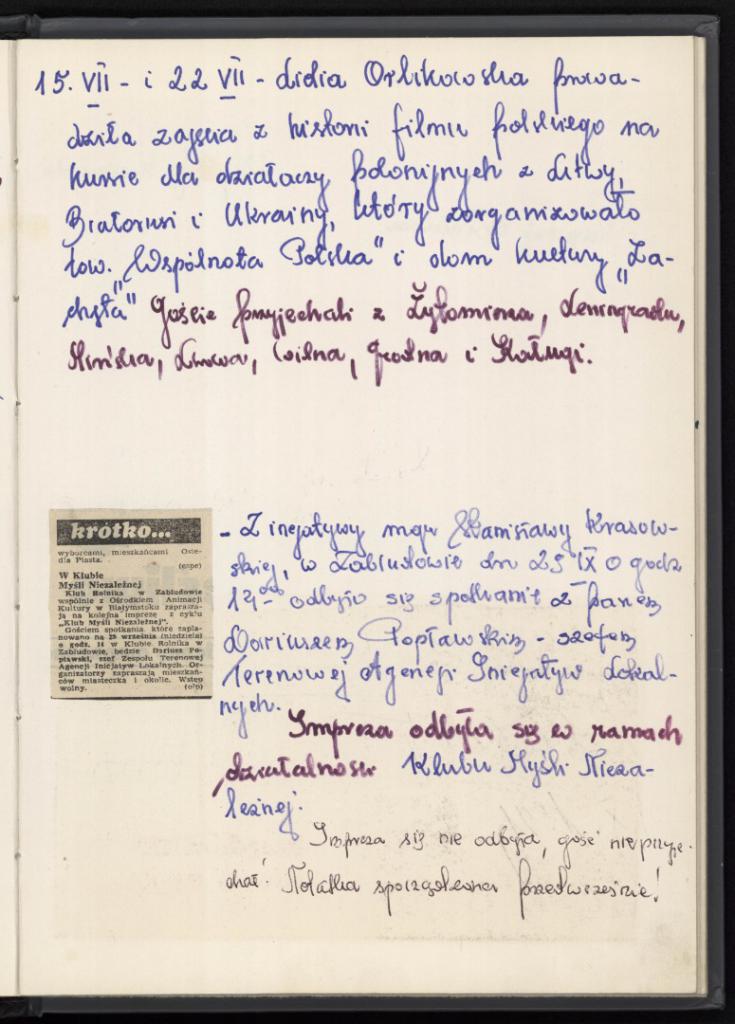 15. VII - i 22 VII - Lidia Orlikowska prowa-
dziła zajęcia z historii filmu polskiego na
kursie dla działaczy polonijnych z Litwy,
Białorusi i Ukrainy, który zorganizowało
tow. "Wspólnota Polska" i dom kultury "Za-
chęta" Goście przyjechali z Żytomierza, Leningradu,
Mińska, Lwowa, Wilna, Grodna i Kaługi.
krótko...
wyborcami, mieszkańcami Osie-
dla Piasta.
(espe)
W Klubie
Myśli Niezależnej
Klub Rolnika w Zabłudowie
wspólnie z Ośrodkiem Animacji
Kultury w Białymstoku zaprasza-
ją na kolejną imprezę z cyklu
„Klub Myśli Niezależnej".
Gościem spotkania, które zapla-
nowano na 25 września (niedziela)
o godz. 14 w Klubie Rolnika w
Zabłudowie, będzie Dariusz Po-
pławski, szef Zespołu Terenowej
Agencji Inicjatyw Lokalnych. Or-
ganizatorzy zapraszają mieszkań-
ców miasteczka i okolic. Wstęp
wolny. (o!p)
- Z inicjatywy mgr Stanisławy Krasow-
skiej, w Zabłudowie dn 25 IX o godz
14 00 odbyło się spotkanie z panem
Dariuszem Popławskim - szefem
Terenowej Agencji Inicjatyw Lokal-
nych.
Impreza odbyła się w ramach
działalności Klubu Myśli Nieza-
leżnej.
Impreza się nie odbyła, gość nie przyje-
chał! Notatka sporządzona przedwcześnie!